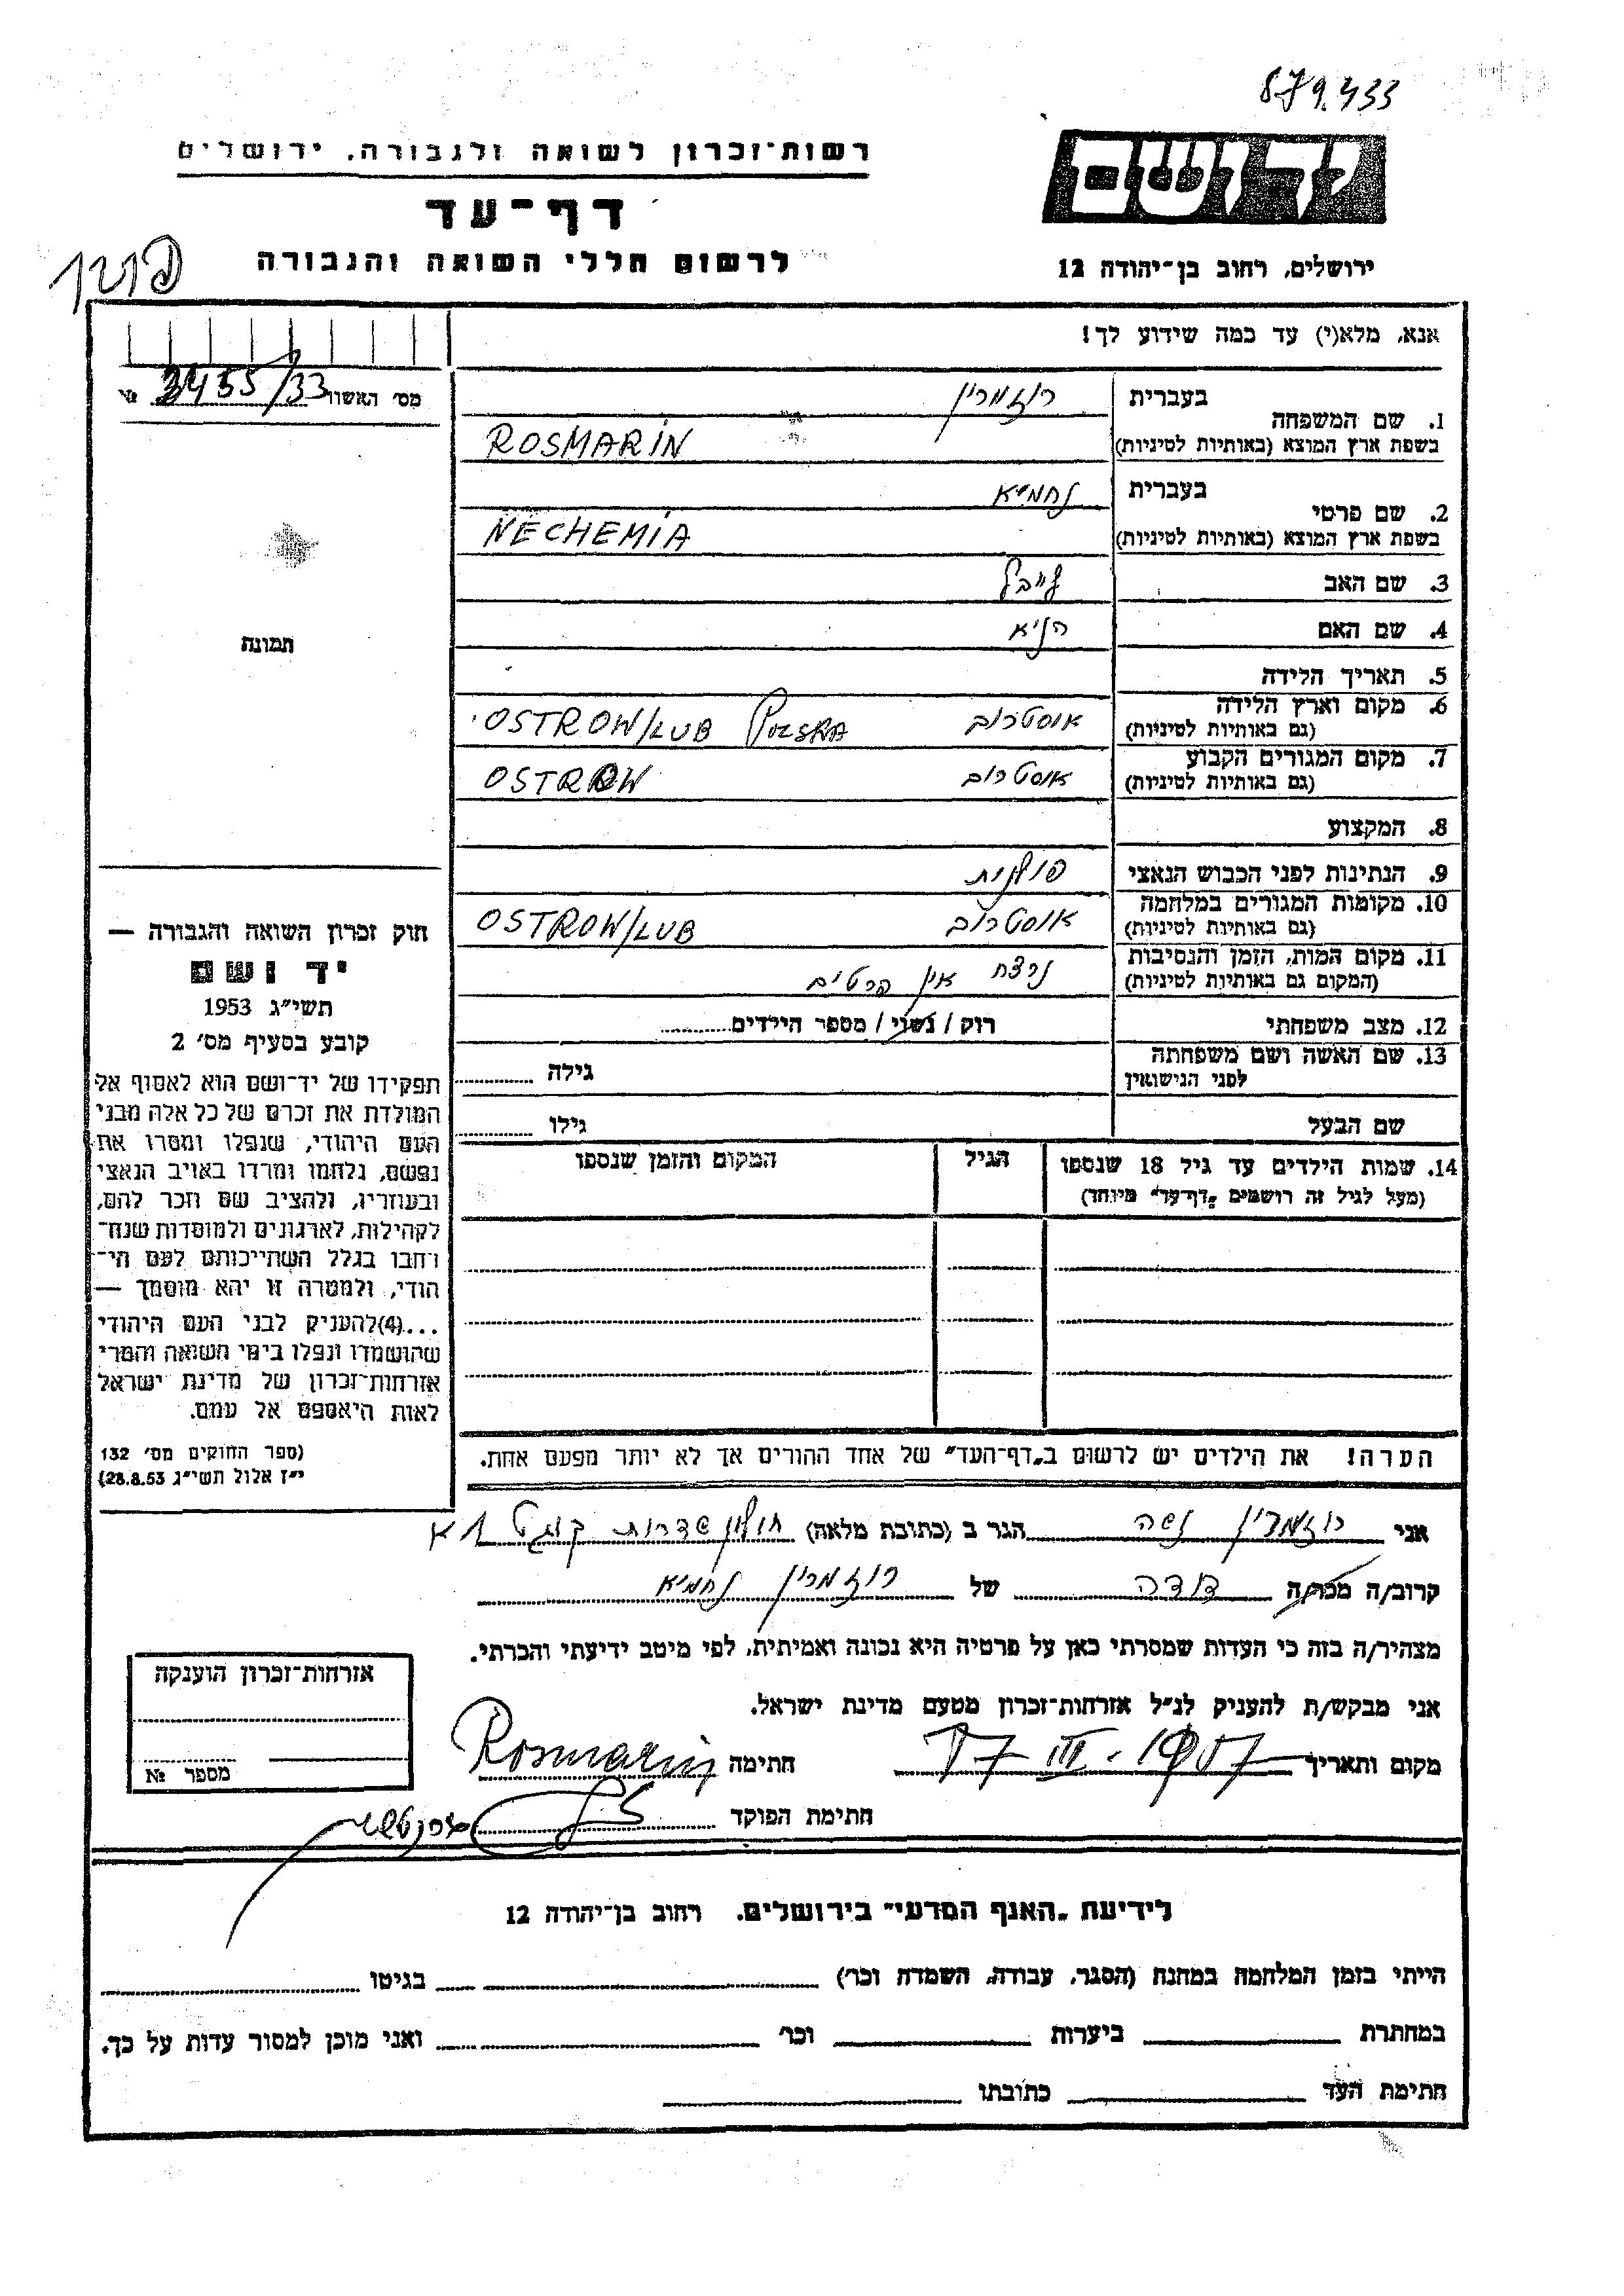 879.433
רשות־זכרון לשואה ולגבורה, ירושלים
יד ושם
דף־עד
לרשום חללי השואה והגבורה
ירושלים, רחוב בן־יהודה 12
אנא, מלא(י) עד כמה שידוע לך!
מס׳ האשור 3455/33 №
1. שם המשפחה
בעברית רוזמרין
בשפת ארץ המוצא (באותיות לטיניות) ROSMARIN
2. שם פרטי
בעברית נחמיא
בשפת ארץ המוצא (באותיות לטיניות) NECHEMIA
3. שם האב לייבל
4. שם האם הניא
תמונה
5. תאריך הלידה
6. מקום וארץ הלידה
(גם באותיות לטיניות) אוסטרוב OSTROW/LUB POLSKA
7. מקום המגורים הקבוע
(גם באותיות לטיניות) אוסטרוב OSTROW
8. המקצוע
9. הנתינות לפני הכבוש הנאצי פולנית
10. מקומות המגורים במלחמה
(גם באותיות לטיניות) אוסטרוב OSTROW/LUB
11. מקום המות, הזמן והנסיבות
(המקום גם באותיות לטיניות) נרצח אין פרטים
12. מצב משפחתי רוק / נשוי / מספר הילדים
13. שם האשה ושם משפחתה
לפני הנישואין גילה
שם הבעל גילו
14. שמות הילדים עד גיל 18 שנספו הגיל המקום והזמן שנספו
(מעל לגיל זה רושמים „דף־עד״ מיוחד)
הערה! את הילדים יש לרשום ב„דף־העד״ של אחד ההורים אך לא יותר מפעם אחת.
חוק זכרון השואה והגבורה —
יד ושם
תשי״ג 1953
קובע בסעיף מס׳ 2
תפקידו של יד־ושם הוא לאסוף אל
המולדת את זכרם של כל אלה מבני
העם היהודי, שנפלו ומסרו את
נפשם, נלחמו ומרדו באויב הנאצי
ובעוזריו, ולהציב שם וזכר להם,
לקהילות, לארגונים ולמוסדות שנח־
רחבו בגלל השתייכותם לעם הי־
הודי, ולמטרה זו יהא מוסמך —
...(4)להעניק לבני העם היהודי
שהושמדו ונפלו בימי השואה והמרי
אזרחות־זכרון של מדינת ישראל
לאות היאספם אל עמם.
(ספר החוקים מס׳ 132
י״ז אלול תשי״ג 28.8.53)
אני רוזמרין הגר ב (כתובת מלאה) חולון שדרות א
קרוב/ה מכר/ה דודה של רוזמרין נחמיא
מצהיר/ה בזה כי העדות שמסרתי כאן על פרטיה היא נכונה ואמיתית, לפי מיטב ידיעתי והכרתי.
אני מבקש/ת להעניק לנ״ל אזרחות־זכרון מטעם מדינת ישראל.
מקום ותאריך 17 III. 1957 חתימה Rosmarin
חתימת הפוקד
אזרחות־זכרון הוענקה
מספר №
לידיעת „האגף המדעי״ בירושלים. רחוב בן־יהודה 12
הייתי בזמן המלחמה במחנה (הסגר, עבודה, השמדה וכר׳) בגיטו
במחתרת ביערות וכר׳ ואני מוכן למסור עדות על כך.
חתימת העד כתובתו